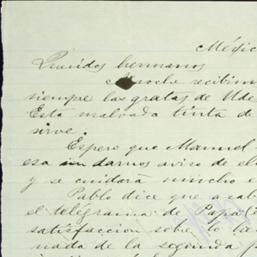 Méjico
Queridos hermanos
Anoche recibim
siempre las gratas de Udes
Esta malvada tinta de
sirve.
Espero que Manuel
esa in darnos aviso de el
y se cuidará mucho e
Pablo dice que acab
el telégrama de Papá (
satisfacción sobre lo la
nada de la segunda p